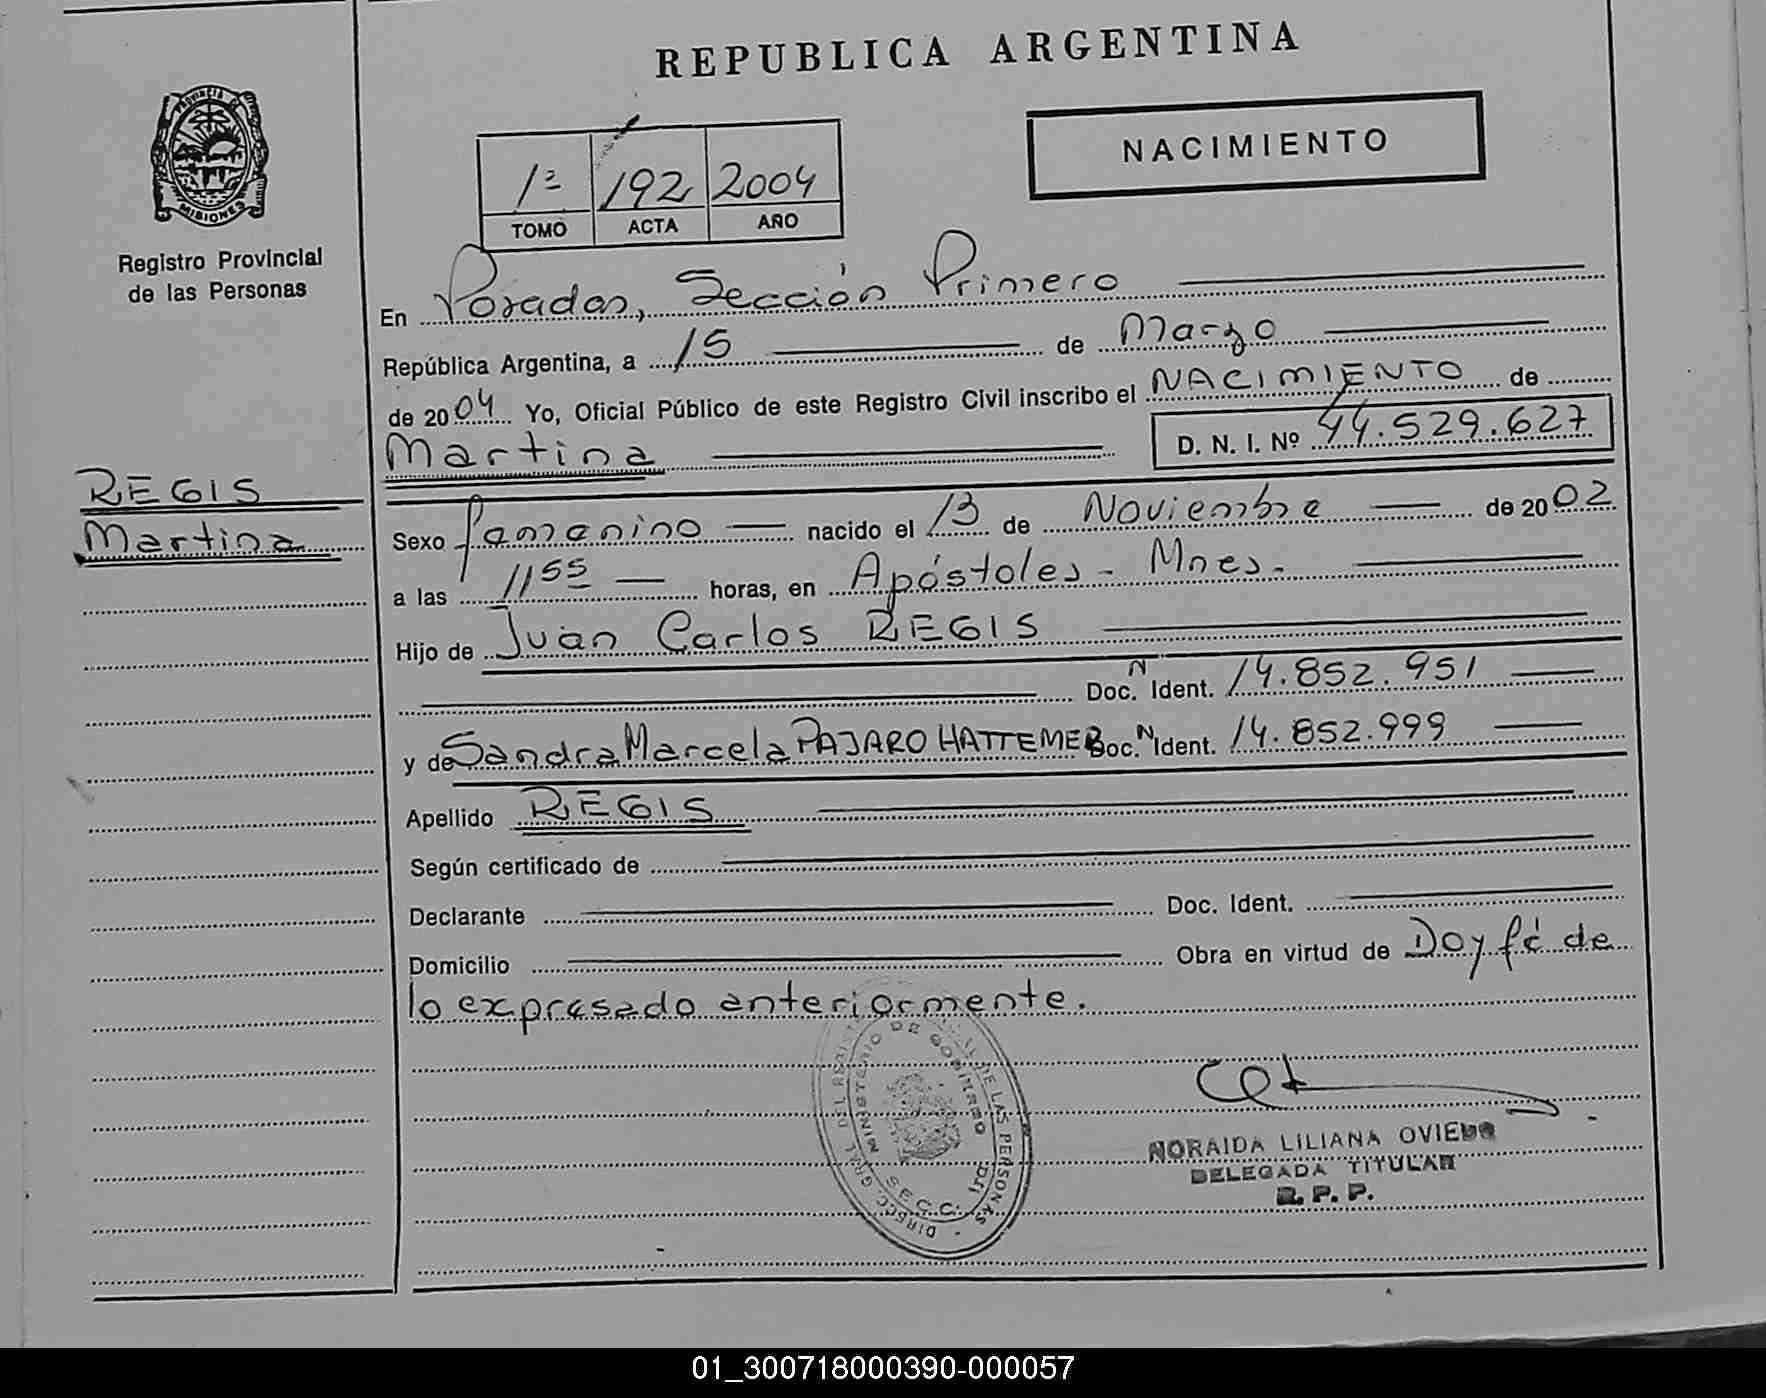 REPUBLICA ARGENTINA
NACIMIENTO
1º 192 2004
TOMO ACTA AÑO
PROVINCIA DE
MISIONES
Registro Provincial
de las Personas
En Posadas, Sección Primero
República Argentina, a 15 de Marzo
de 2004 Yo, Oficial Público de este Registro Civil inscribo el NACIMIENTO de
Martina D. N. I. Nº 44.529.627
REGIS
Martina
Sexo femenino nacido el 13 de Noviembre de 2002
a las 11 55 horas, en Apóstoles - Mnes.
Hijo de Juan Carlos REGIS
Doc. N Ident. 14.852.951
y de Sandra Marcela PAJARO HATTEMER Doc. N Ident. 14.852.999
Apellido REGIS
Según certificado de
Declarante Doc. Ident.
Domicilio Obra en virtud de Doy fé de
lo expresado anteriormente.
DIRECC. GRAL. DEL REGIST. DE LAS PERSONAS
MINISTERIO DE GOBIERNO
SECC. 1RA
NORAIDA LILIANA OVIEDO
DELEGADA TITULAR
R. P. P.
01_300718000390-000057